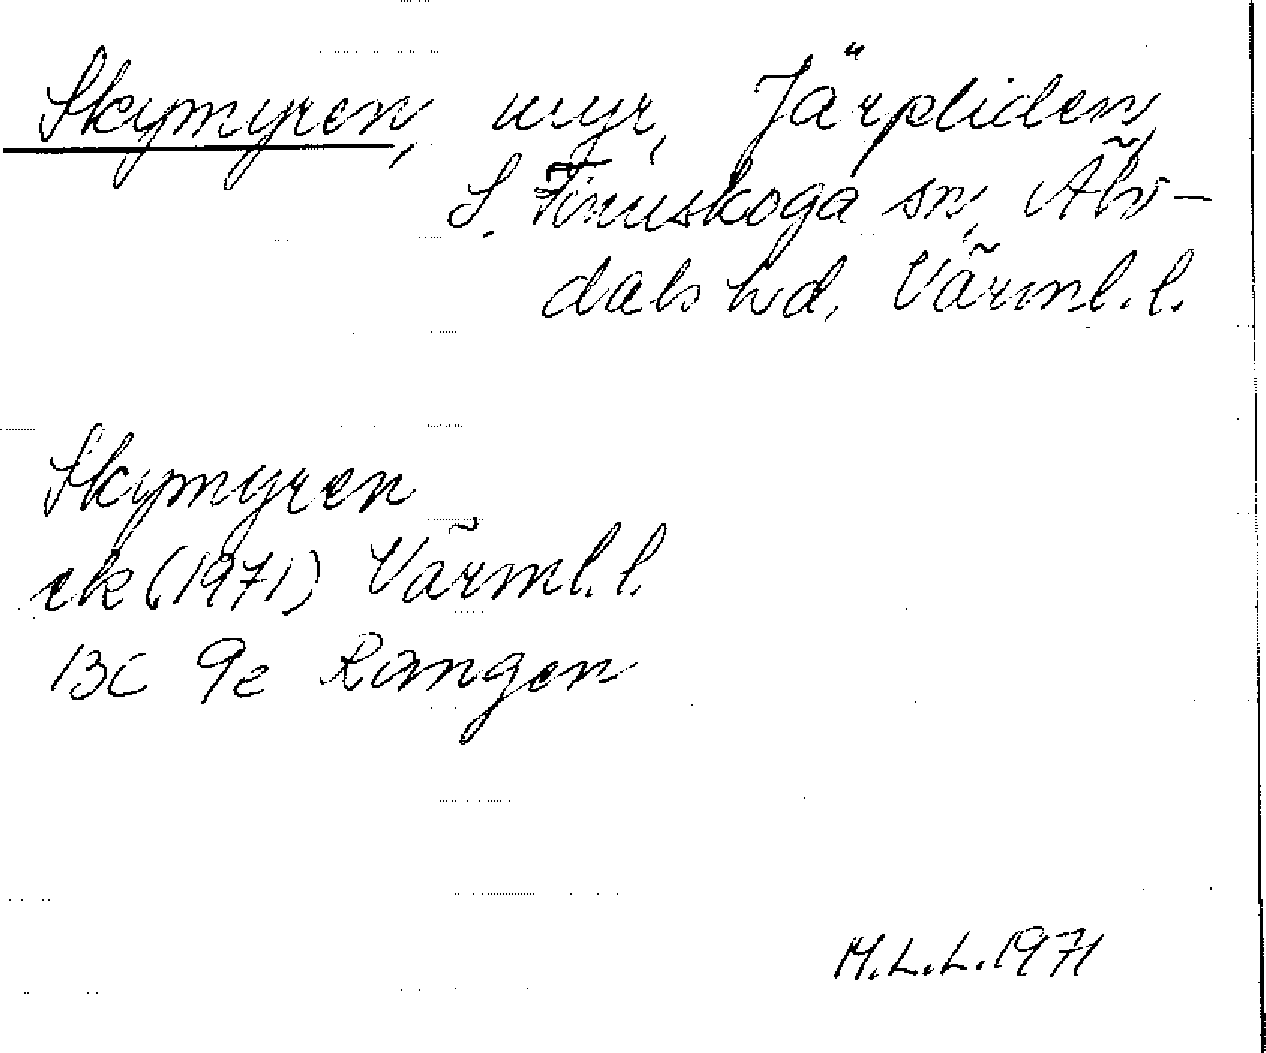 Skymyren, myr, Järpliden,
S. Finnskoga sn, Älv-
dals hd, Värml. l.
Skymyren
ek (1971) Värml. l.
13C 9e Rangen
M.L.L. 1971